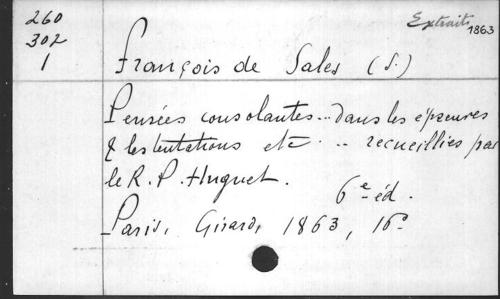 260
302
1
Extraits
1863
François de Sales (S.)
Pensées consolantes... dans les épreuves
& les tentations etc ... recueillies par
le R. P. Huguet.
6e éd.
Paris, Girard, 1863, 16o